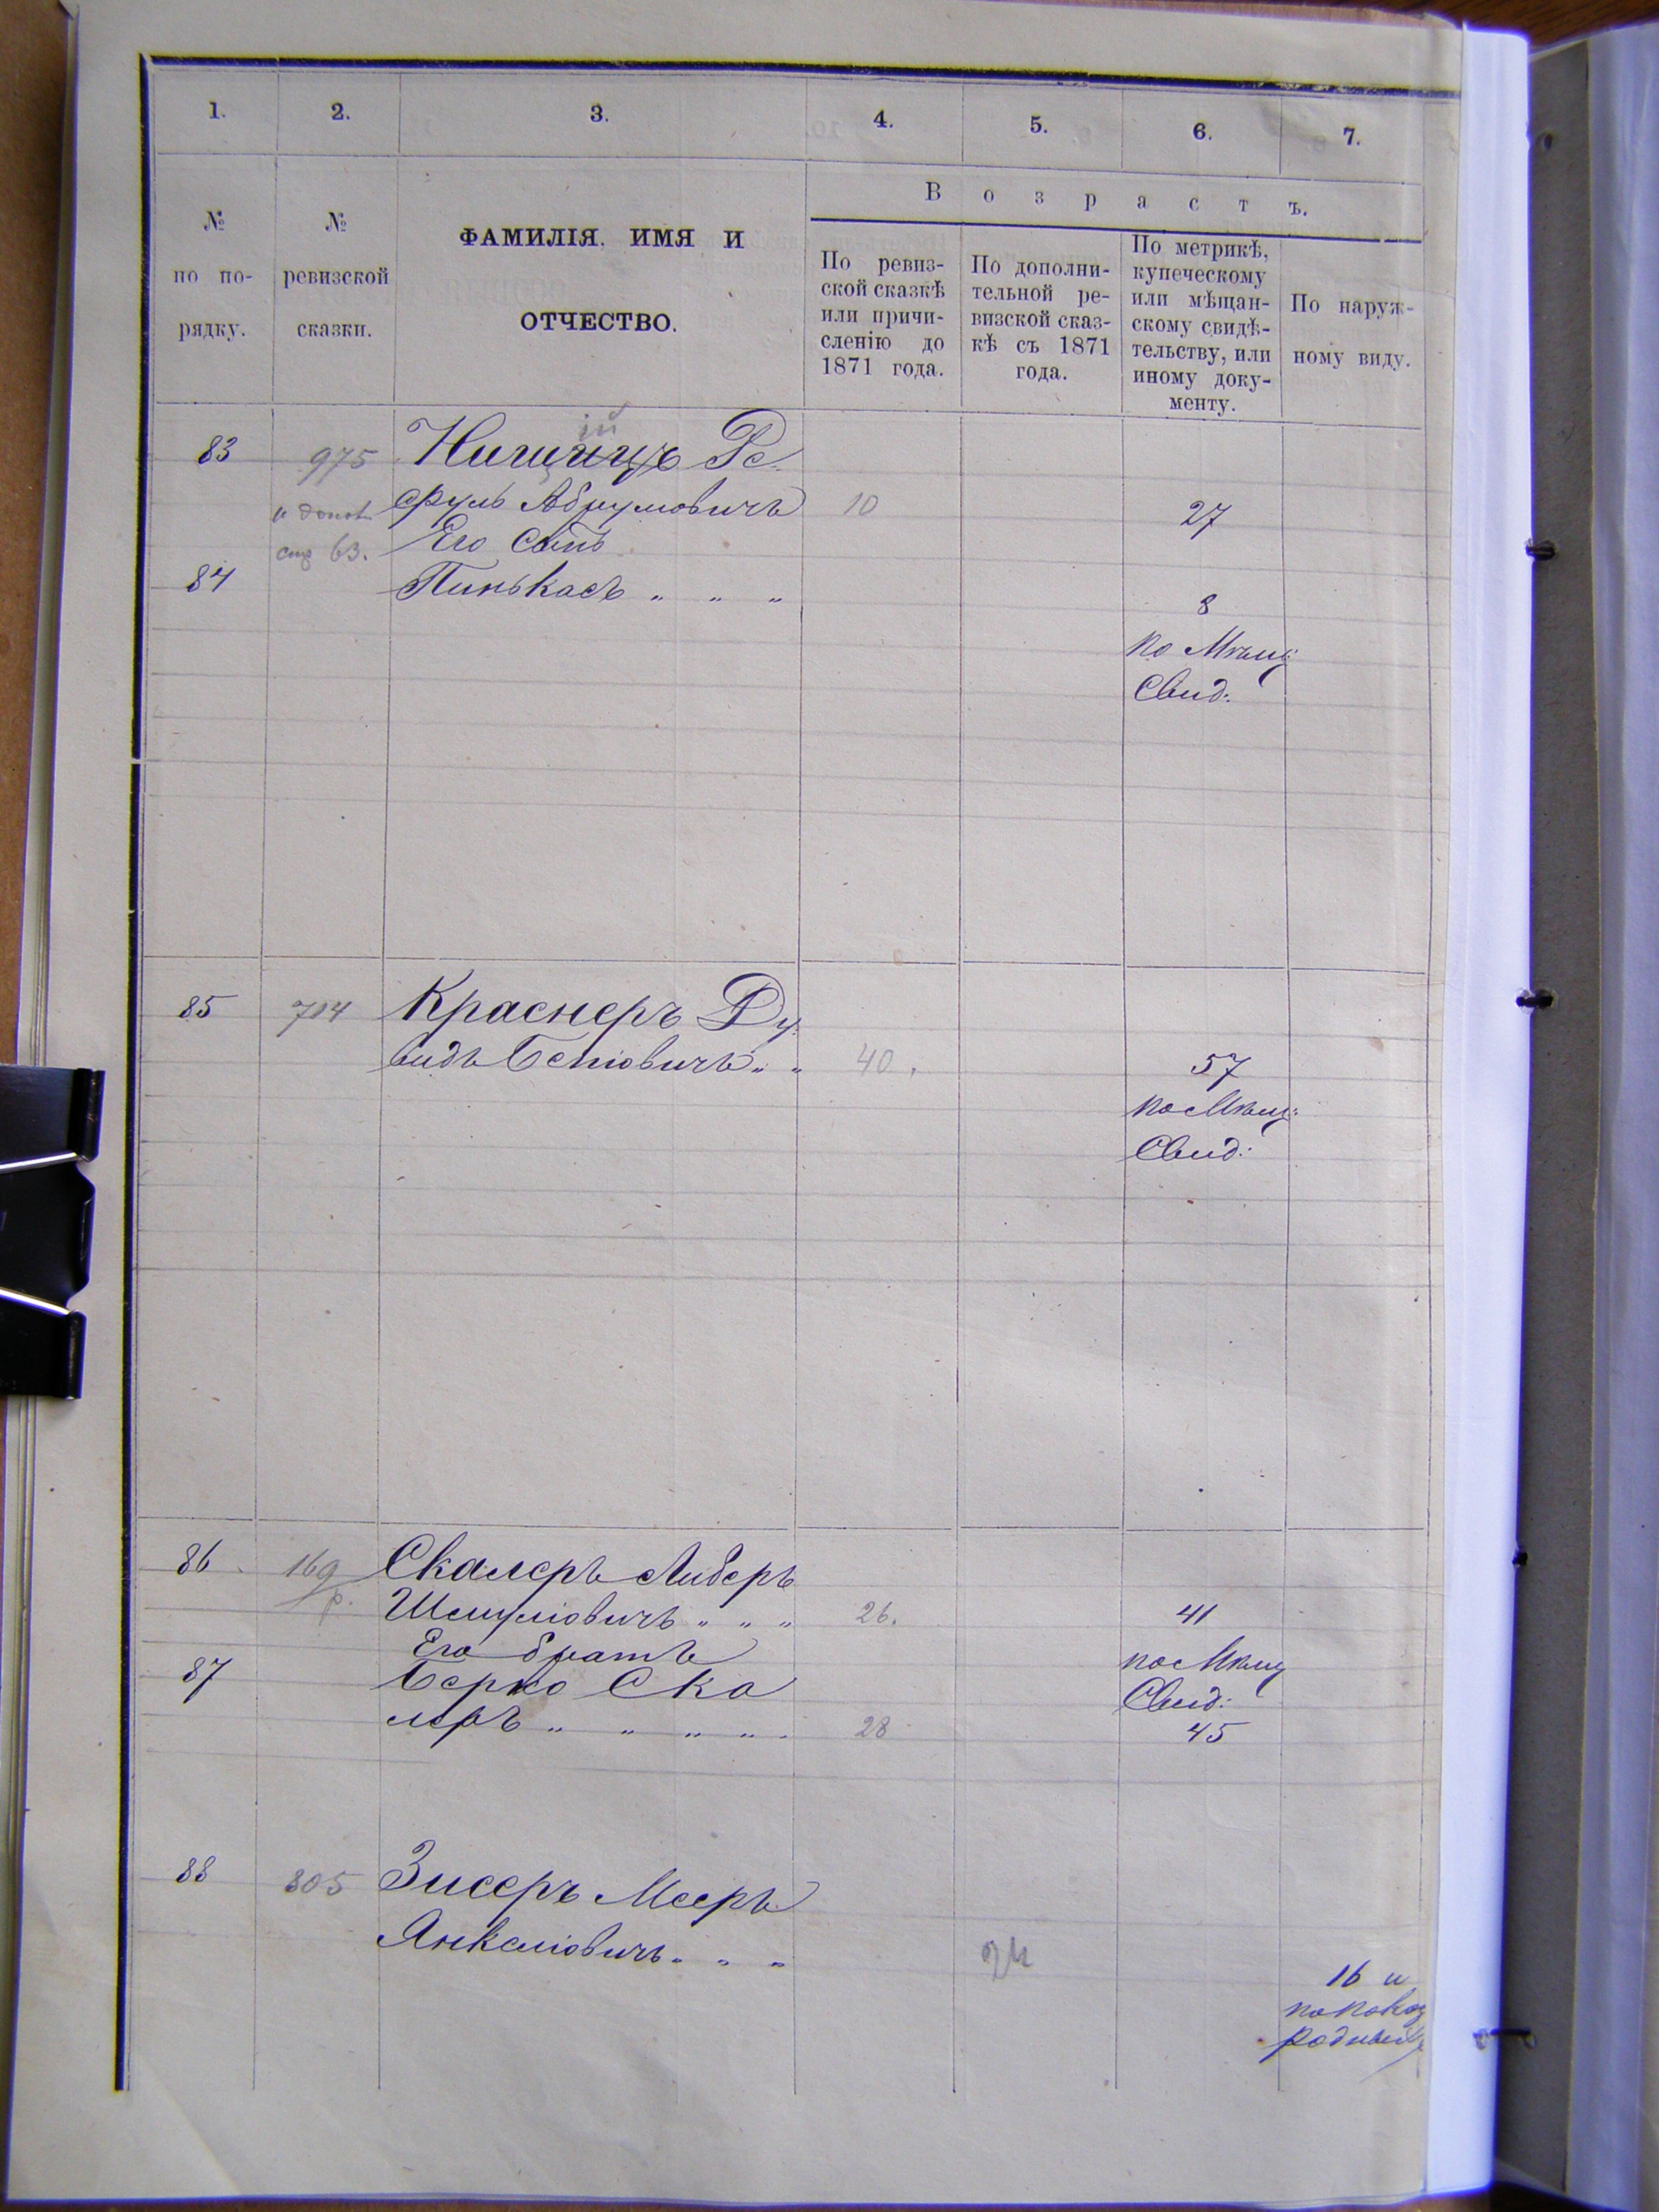 1. 2. 3. 4. 5. 6. 7.
В о з р а с т ъ.
№ по по- рядку.
№ ревизской сказки.
ФАМИЛІЯ, ИМЯ И
ОТЧЕСТВО.
По ревиз-
ской сказкѣ
или причи-
сленію до
1871 года.
По дополни-
тельной ре-
визской сказ-
кѣ съ 1871
года.
По метрикѣ,
купеческому
или мѣщан-
скому свидѣ-
тельству, или
иному доку-
менту.
По наруж-
ному виду.
83 975
Абрумовичъ 10 27
стр 63. Его Сынъ
84 Пинькасъ " " " 8
по Мѣщ:
Свид:
85 714 Краснеръ Ду
видъ Беніовичъ " " 40. 57
по Мѣщ:
Свид:
86 169 Скалеръ Либеръ
р. Шмуліовичъ " " " 26. 41
Его братъ по Мѣщ
87 Берко Ска Свид:
леръ " " " " 28 45
88 805 Зисеръ Мееръ
Янкеліовичъ " " " 24 16 и
по показ
родныхъ